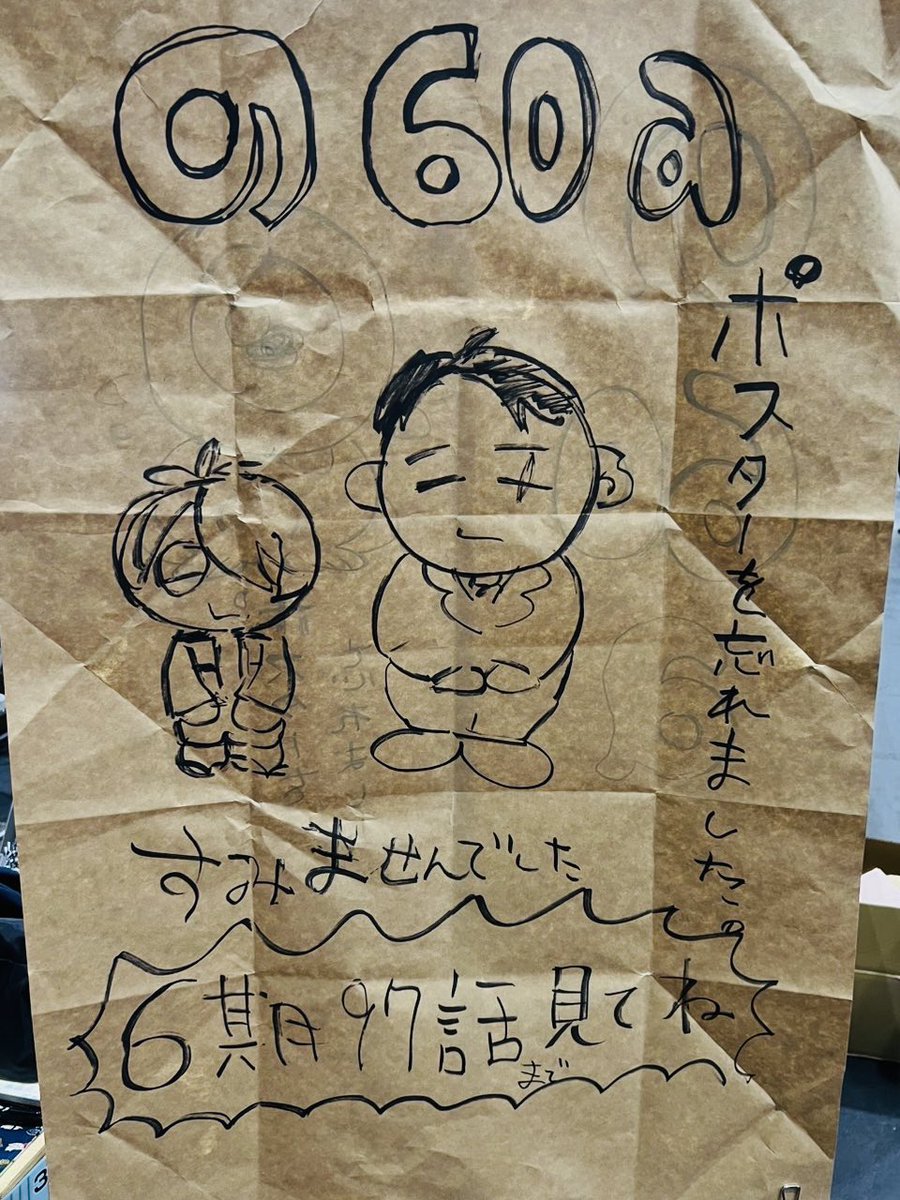 の60a
ポスターを忘れましたの
すみませんでした
6期97話まで見てね